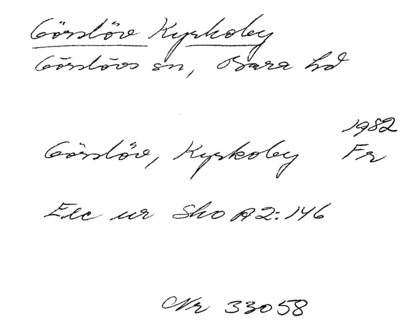 Görslöv Kyrkoby
Görslövs sn, Bara hd
1982
Görslöv, Kyrkoby Fr
Exc ur SkO A2:146
Nr 33058